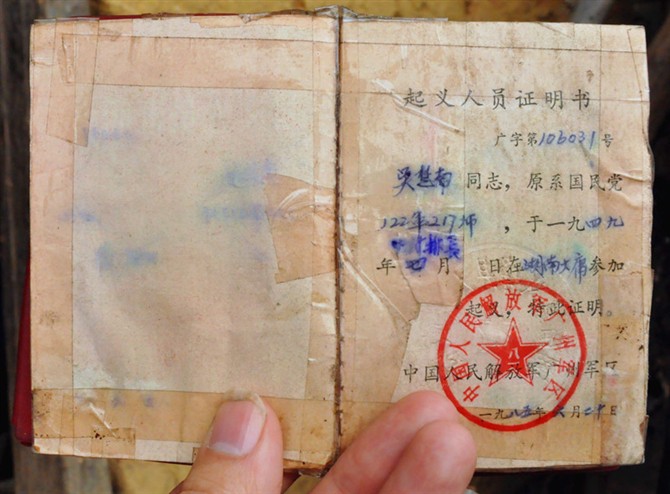 起义人员证明书
广字第106031号
吴楚南同志，原系国民党
122年217师，于一九四九
中尉排长
年 月 日在湖南 参加
起义，特此证明。
中国人民解放军广州军区
一九八五年 月二十日
中国人民解放军广州军区
八一